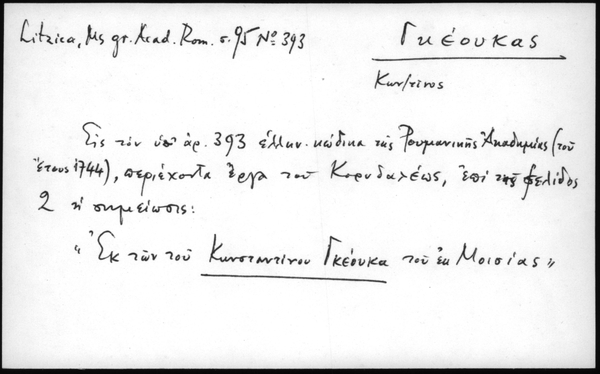 Litzica, Ms gr. Acad. Rom. σ. 95 Nº 393
Γκέουκας
Κων/τίνος
Εἰς τὸν ὑπ' ἀρ. 393 ἑλλην. κώδικα τῆς Ρουμανικῆς Ἀκαδημίας (τοῦ
ἔτους 1744), περιέχοντα ἔργα τοῦ Κορυδαλέως, ἐπὶ τῆς σελίδος
2 ἡ σημείωσις:
"Ἐκ τῶν τοῦ Κωνσταντίνου Γκέουκα τοῦ ἐκ Μοισίας"